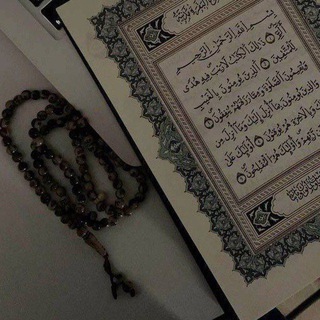 بِسْمِ ٱللَّهِ ٱلرَّحْمَٰنِ ٱلرَّحِيمِ
الٓمٓ ۝ ذَٰلِكَ ٱلْكِتَٰبُ لَا رَيْبَ فِيهِ هُدًى
لِّلْمُتَّقِينَ ۝ ٱلَّذِينَ يُؤْمِنُونَ بِٱلْغَيْبِ
وَيُقِيمُونَ ٱلصَّلَوٰةَ وَمِمَّا رَزَقْنَٰهُمْ يُنفِقُونَ ۝
وَٱلَّذِينَ يُؤْمِنُونَ بِمَآ أُنزِلَ إِلَيْكَ وَمَآ أُنزِلَ مِن
قَبْلِكَ وَبِٱلْءَاخِرَةِ هُمْ يُوقِنُونَ ۝ أُو۟لَٰٓئِكَ عَلَىٰ
هُدًى مِّن رَّبِّهِمْ وَأُو۟لَٰٓئِكَ هُمُ ٱلْمُفْلِحُونَ ۝